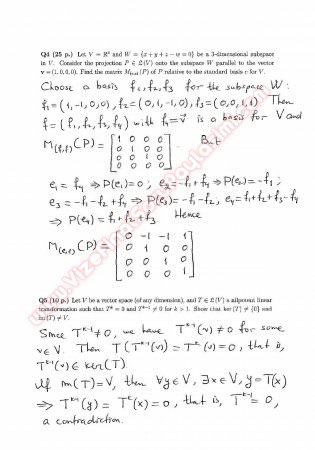 Q4 (25 p.) Let V = R⁴ and W = {x + y + z − w = 0} be a 3-dimensional subspace
in V. Consider the projection P ∈ L(V) onto the subspace W parallel to the vector
v = (1, 0, 0, 0). Find the matrix M(e,e)(P) of P relative to the standard basis e for V.
Choose a basis f₁, f₂, f₃ for the subspace W:
f₁ = (1, -1, 0, 0), f₂ = (0, 1, -1, 0), f₃ = (0, 0, 1, 1). Then
f = (f₁, f₂, f₃, f₄) with f₄ = v is a basis for V and
M(f,f)(P) = [1 0 0 0
0 1 0 0
0 0 1 0
0 0 0 0]. But
e₁ = f₄ ⇒ P(e₁) = 0; e₂ = -f₁ + f₄ ⇒ P(e₂) = -f₁;
e₃ = -f₁ - f₂ + f₄ ⇒ P(e₃) = -f₁ - f₂, e₄ = f₁ + f₂ + f₃ - f₄
⇒ P(e₄) = f₁ + f₂ + f₃ Hence
M(e,e)(P) = [0 -1 -1 1
0 1 0 0
0 0 1 0
0 0 0 1]
Q5 (10 p.) Let V be a vector space (of any dimension), and T ∈ L(V) a nilpotent linear
transformation such that Tᵏ = 0 and Tᵏ⁻¹ ≠ 0 for k > 1. Show that ker(T) ≠ {0} and
im(T) ≠ V.
Since Tᵏ⁻¹ ≠ 0, we have Tᵏ⁻¹(v) ≠ 0 for some
v ∈ V. Then T(Tᵏ⁻¹(v)) = Tᵏ(v) = 0, that is,
Tᵏ⁻¹(v) ∈ ker(T).
If im(T) = V, then ∀y ∈ V, ∃x ∈ V, y = T(x)
⇒ Tᵏ⁻¹(y) = Tᵏ(x) = 0, that is, Tᵏ⁻¹ = 0,
a contradiction.